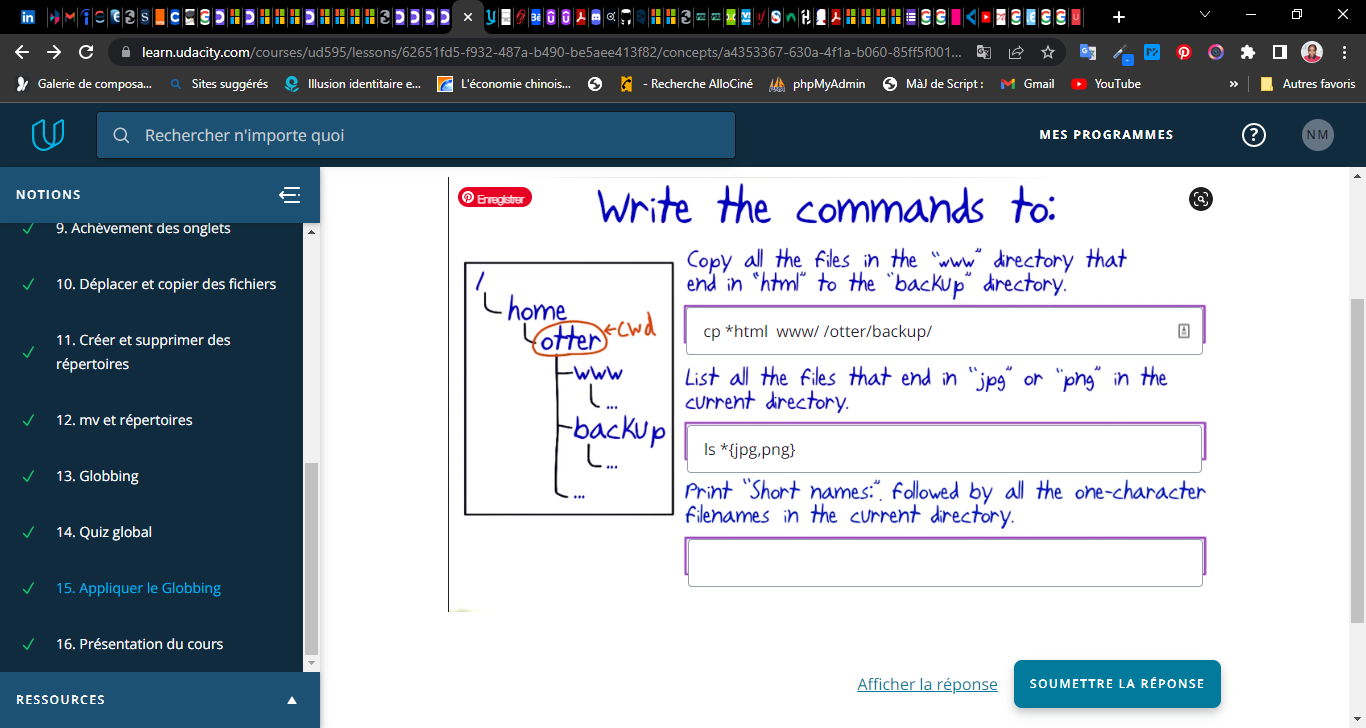 learn.udacity.com/courses/ud595/lessons/62651fd5-f932-487a-b490-be5aee413f82/concepts/a4353367-630a-4f1a-b060-85ff5f001...
Galerie de composa... Sites suggérés Illusion identitaire e... L'économie chinois... - Recherche AlloCiné phpMyAdmin MàJ de Script : Gmail YouTube » Autres favoris
Rechercher n'importe quoi MES PROGRAMMES ? NM
NOTIONS
9. Achèvement des onglets
10. Déplacer et copier des fichiers
11. Créer et supprimer des
répertoires
12. mv et répertoires
13. Globbing
14. Quiz global
15. Appliquer le Globbing
16. Présentation du cours
RESSOURCES
Enregistrer
Write the commands to:
/
home
otter ←cwd
www
...
backup
...
...
Copy all the files in the "www" directory that
end in "html" to the "backup" directory.
cp *html www/ /otter/backup/
List all the files that end in "jpg" or "png" in the
current directory.
ls *{jpg,png}
Print "Short names:", followed by all the one-character
filenames in the current directory.
Afficher la réponse SOUMETTRE LA RÉPONSE